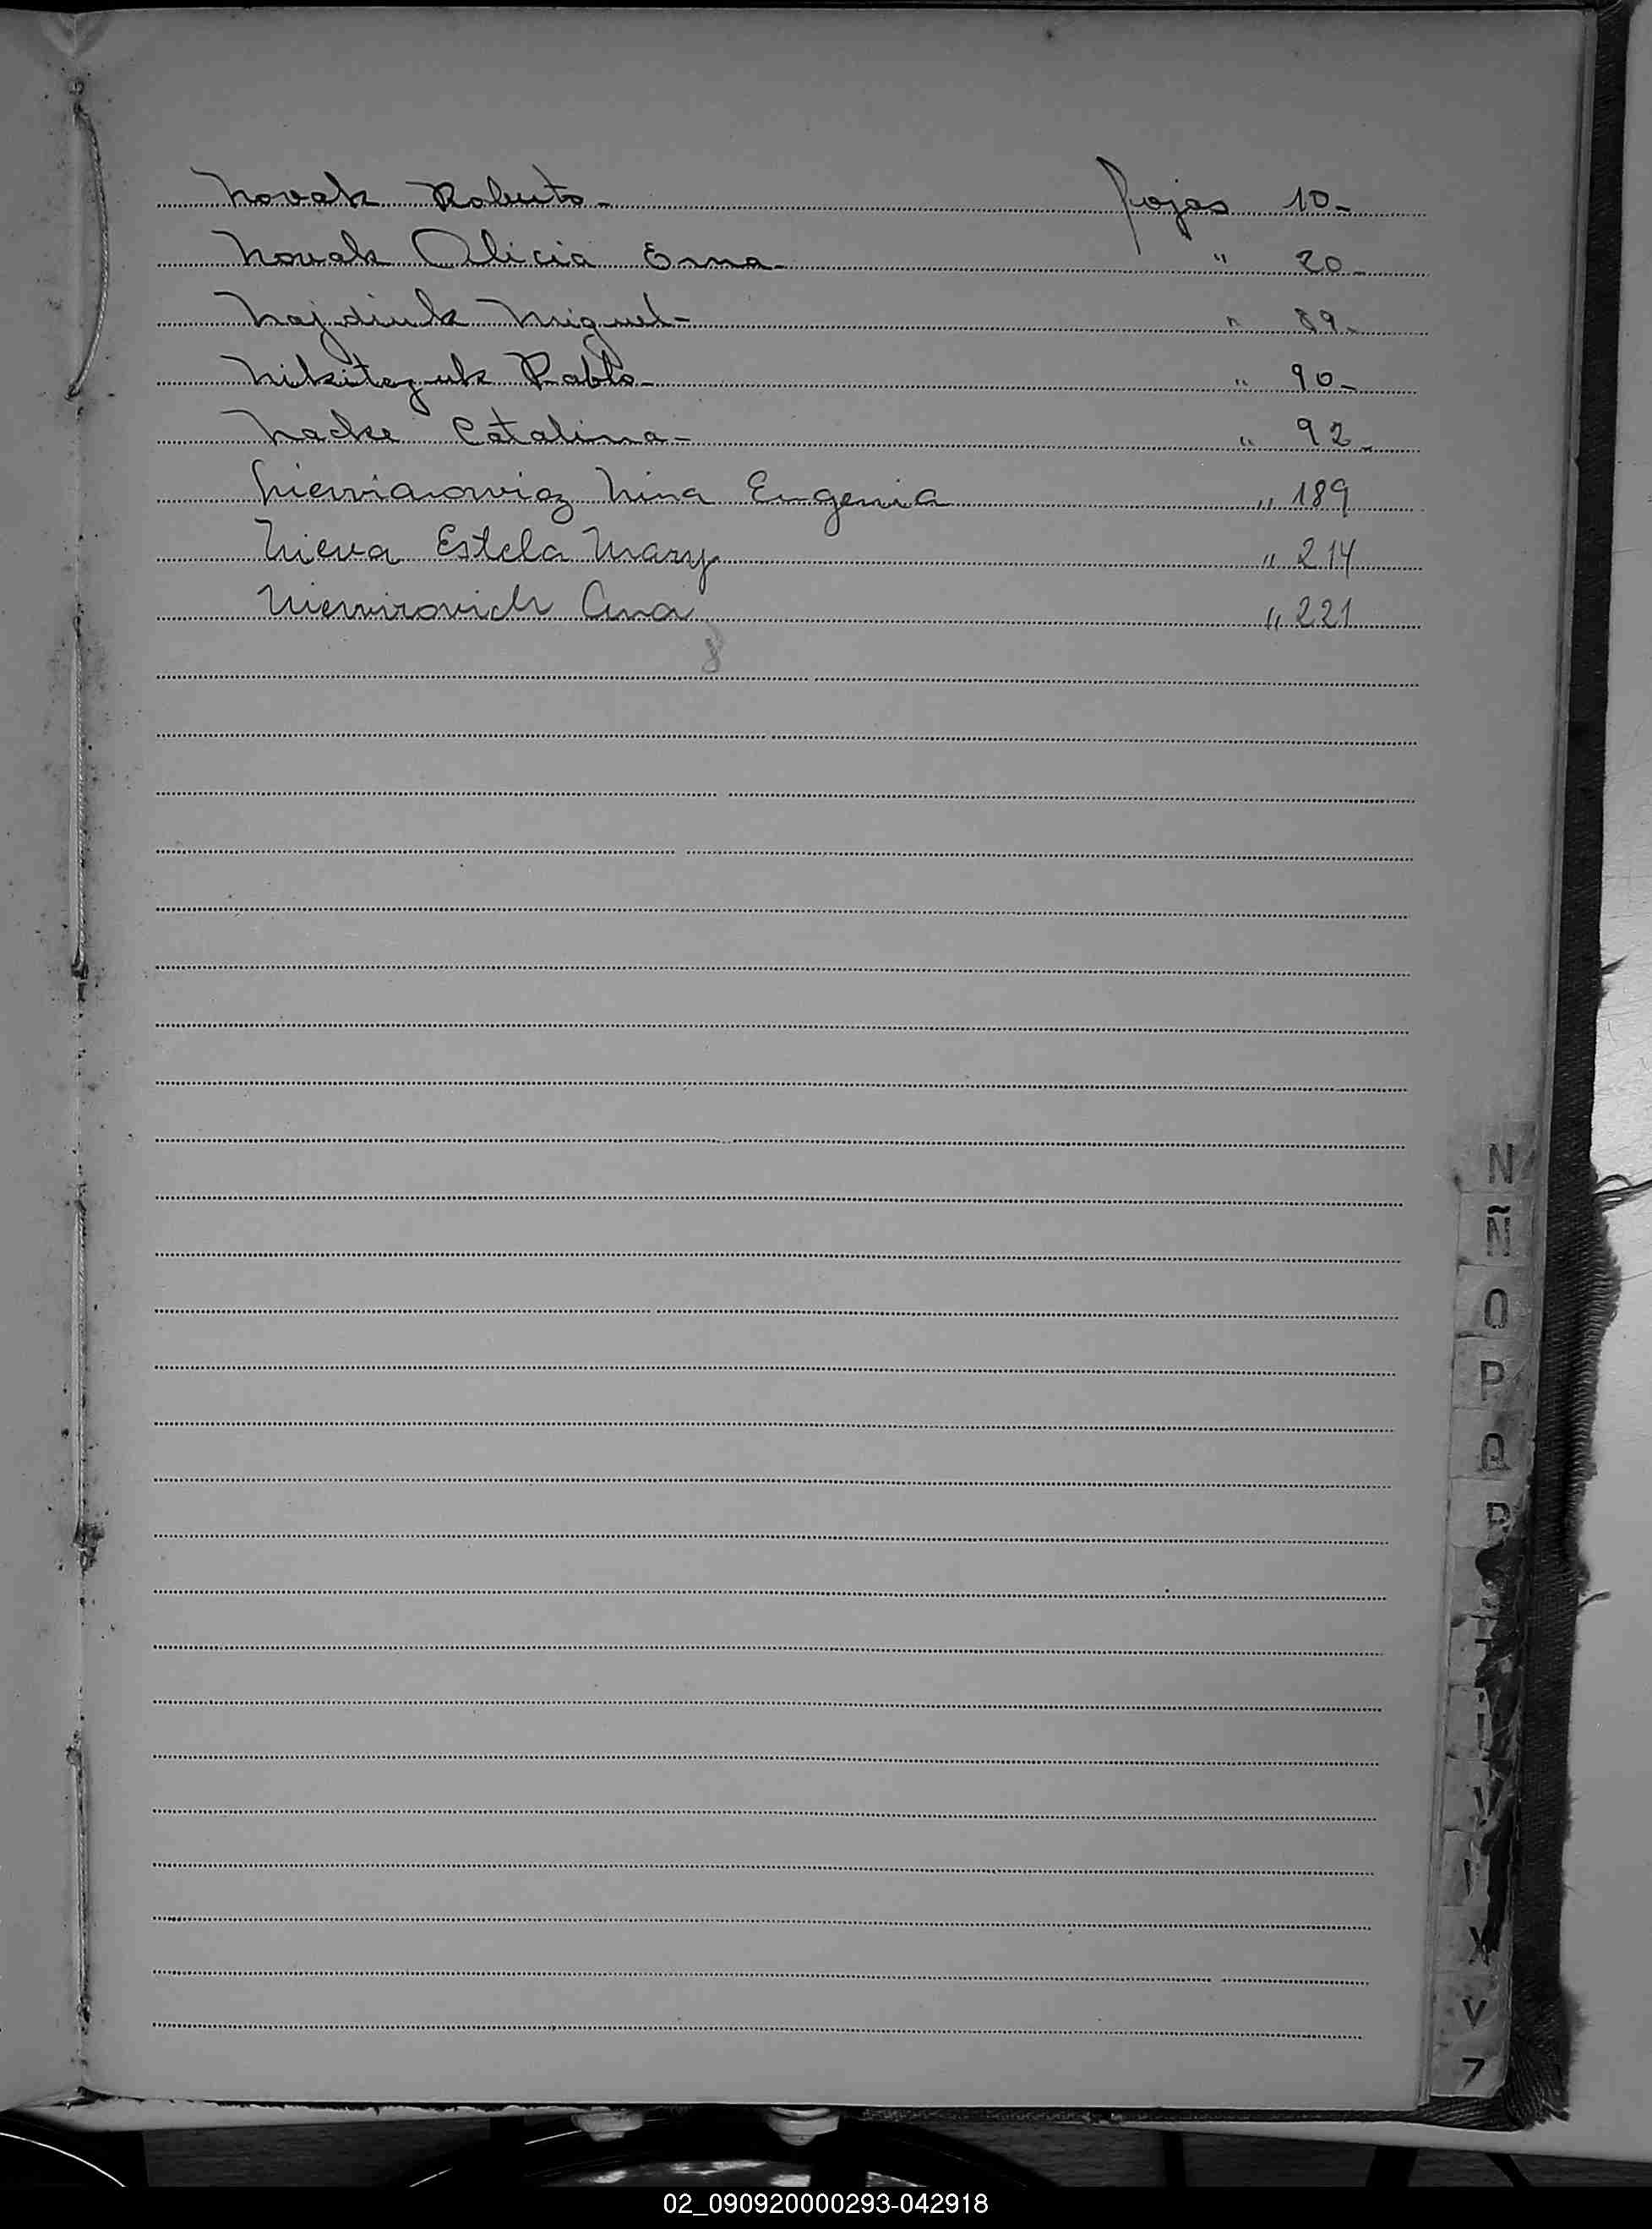 Novak Roberto - fojas 10 -
Novak Alicia Erna - " 20 -
Najdiuk Miguel - " 89 -
Nikitczuk Pablo - " 90 -
Nacke Catalina - " 92 -
Nina Eugenia " 189
Nieva Estela Mary " 214
Niemirovich Ana " 221
8
N
Ñ
O
P
Q
R
T
V
X
02_090920000293-042918